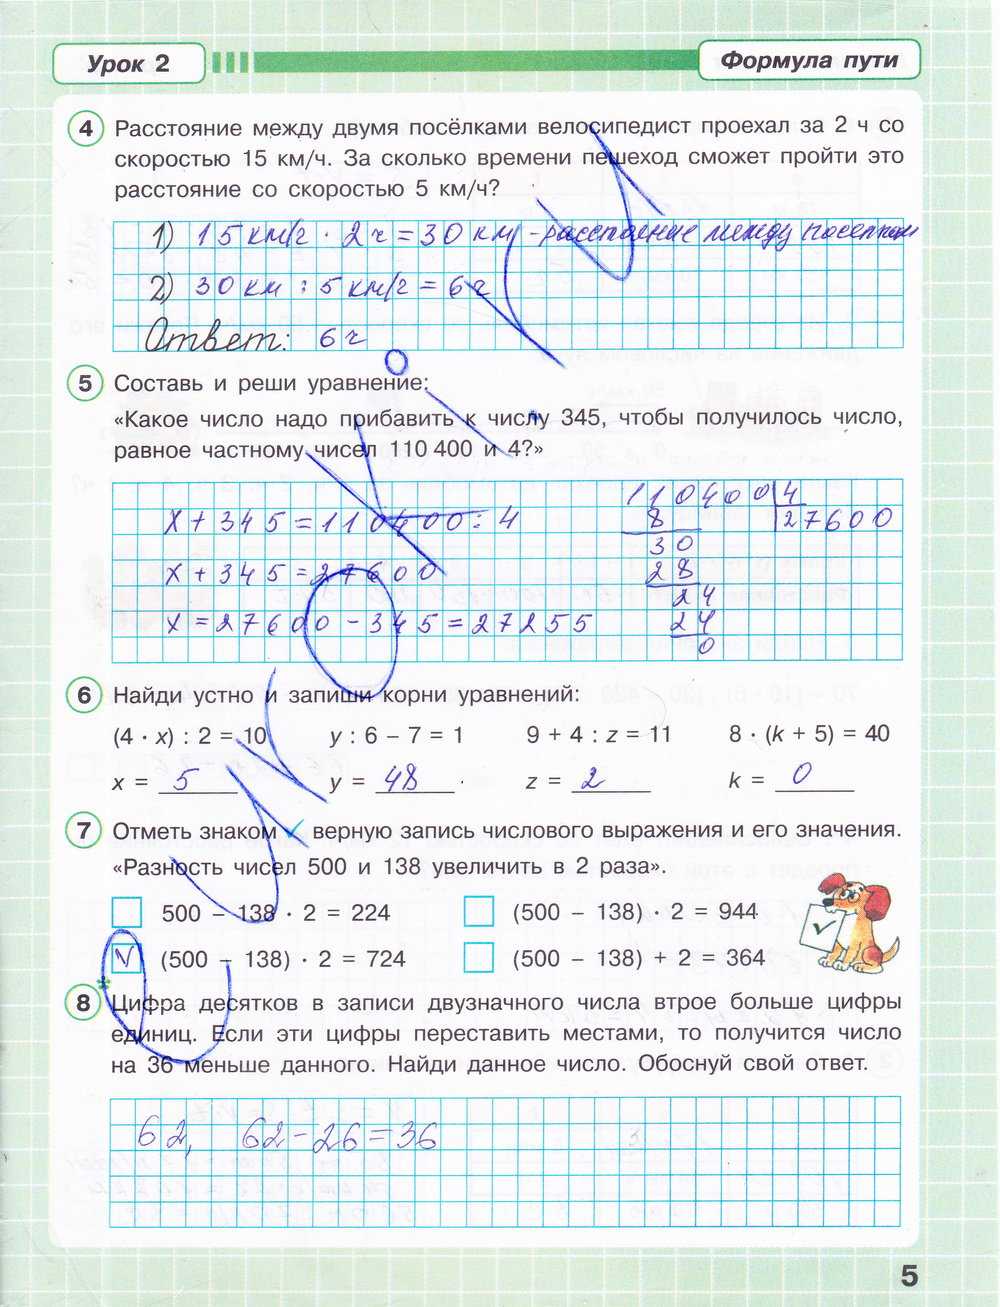 Урок 2
Формула пути
4 Расстояние между двумя посёлками велосипедист проехал за 2 ч со
скоростью 15 км/ч. За сколько времени пешеход сможет пройти это
расстояние со скоростью 5 км/ч?
1) 15 км/ч · 2 ч = 30 км - расстояние между
2) 30 км : 5 км/ч = 6 ч
Ответ: 6 ч
5 Составь и реши уравнение:
«Какое число надо прибавить к числу 345, чтобы получилось число,
равное частному чисел 110 400 и 4?»
x + 345 = 110400 : 4
x + 345 = 27600
x = 27600 - 345 = 27255
110400 4
8 27600
30
28
24
24
0
6 Найди устно и запиши корни уравнений:
(4 · x) : 2 = 10 y : 6 – 7 = 1 9 + 4 : z = 11 8 · (k + 5) = 40
x = 5 y = 48 z = 2 k = 0
7 Отметь знаком ✓ верную запись числового выражения и его значения.
«Разность чисел 500 и 138 увеличить в 2 раза».
500 – 138 · 2 = 224 (500 – 138) · 2 = 944
✓ (500 – 138) · 2 = 724 (500 – 138) + 2 = 364
8* Цифра десятков в записи двузначного числа втрое больше цифры
единиц. Если эти цифры переставить местами, то получится число
на 36 меньше данного. Найди данное число. Обоснуй свой ответ.
62, 62 - 26 = 36
5